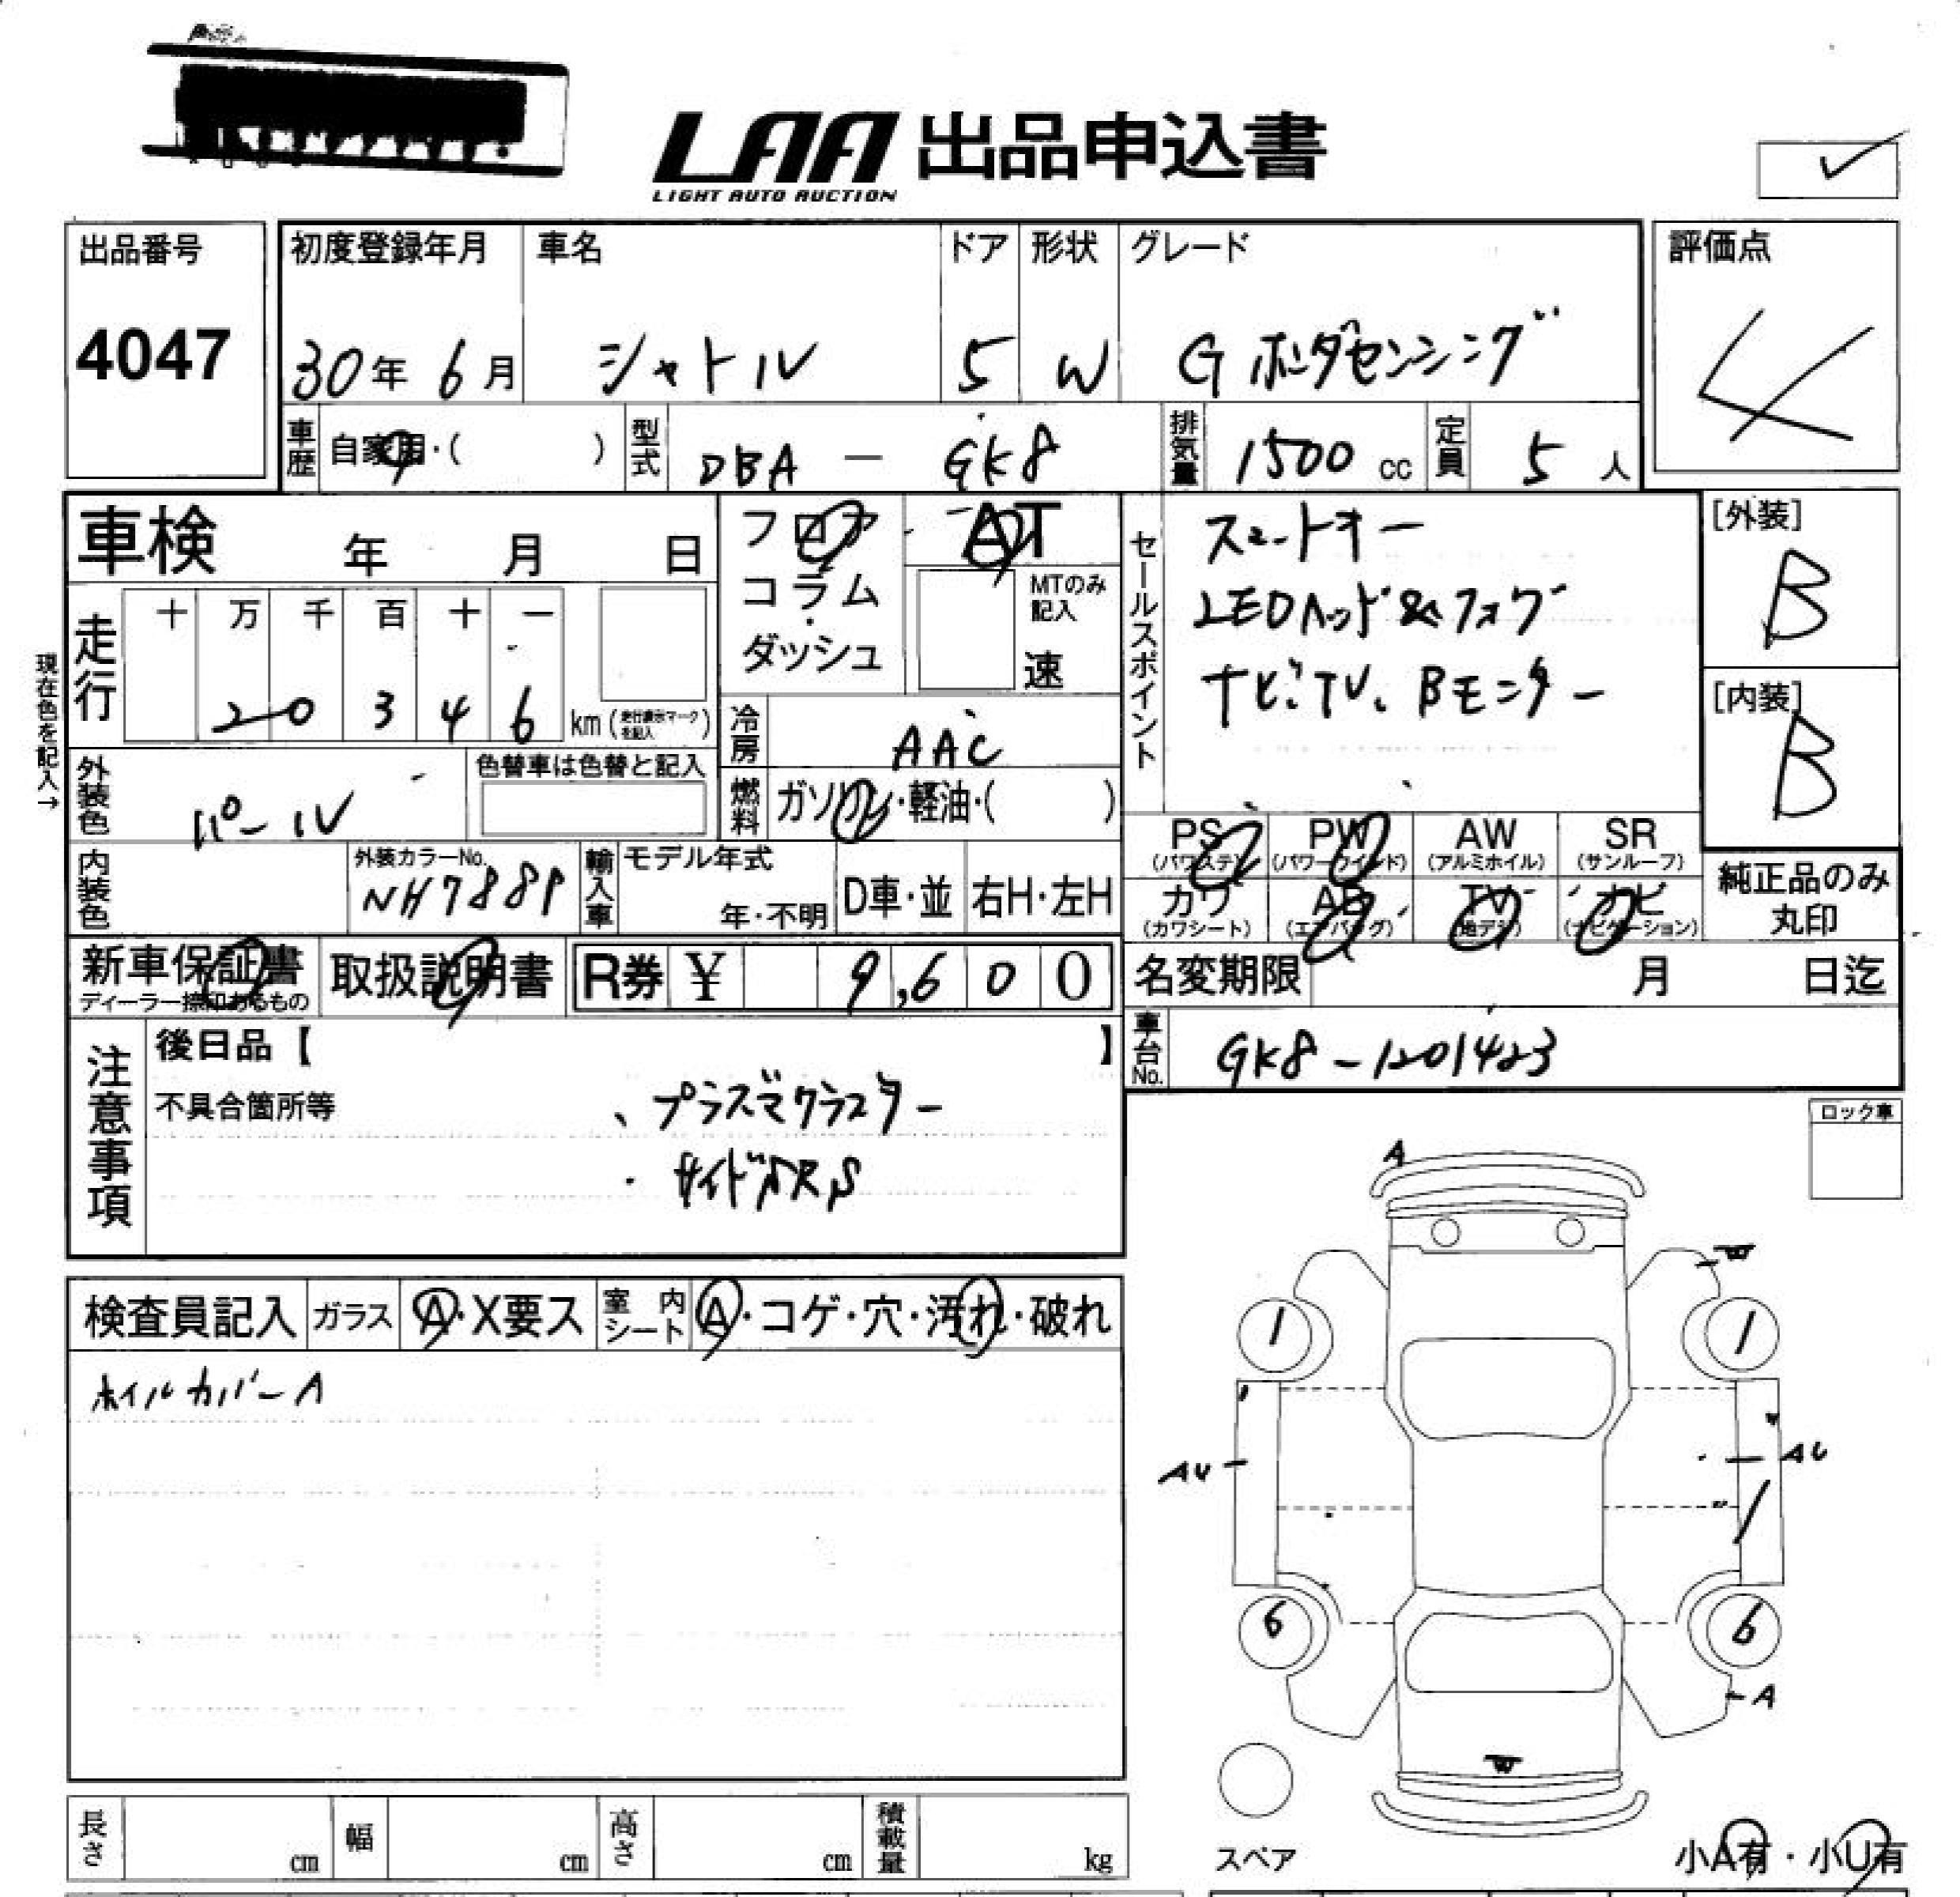 LAA 出品申込書
LIGHT AUTO AUCTION
出品番号
4047
初度登録年月 車名 ドア 形状 グレード
30年 6月 シャトル 5 W Gホンダセンシング
評価点
4
車歴 自家用・( ) 型式 DBA - GK8 排気量 1500 cc 定員 5 人
車検 年 月 日
フロア AT
コラム
ダッシュ
MTのみ記入
速
セールスポイント
スマートキー
LEDヘッド&フォグ
ナビ、TV、Bモニター
[外装]
B
[内装]
B
現在色を記入→
走行 十 万 千 百 十 一
2 0 3 4 6 km (走行表示マークを記入)
冷房 AAC
外装色 パール
色替車は色替と記入
燃料 ガソリン・軽油・( )
PS (パワステ) PW (パワーウインド) AW (アルミホイル) SR (サンルーフ)
カワ (カワシート) AB (エアバッグ) TV (地デジ) ナビ (ナビゲーション)
純正品のみ
丸印
内装色 外装カラーNo. NH788P
輸入車 モデル年式 年・不明 D車・並 右H・左H
新車保証書 取扱説明書 R券 ¥ 9,600
ディーラー捺印あるもの
名変期限 月 日迄
車台No. GK8-1201423
注意事項
後日品【 】
不具合箇所等
、プラズマクラスター
・サイドSRS
ロック車
検査員記入 ガラス A・X要ス 室内シート A・コゲ・穴・汚れ・破れ
ホイルカバーA
A
W
1 1
AU AU
6 6
A
W
スペア
小A有・小U有
長さ cm 幅 cm 高さ cm 積載量 kg